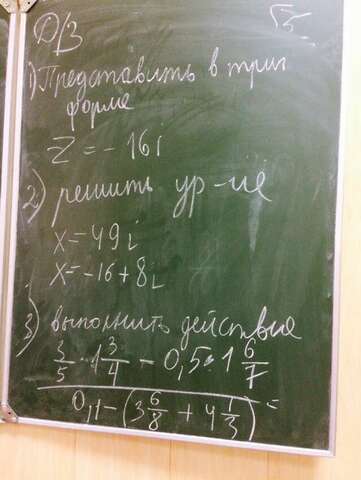 Д/З
√5
1) Представить в триг
форме
Z = - 16i
2) решить ур-ие
x = 49i
x = -16 + 8i
3) выполнить действие
3/5 · 1 3/4 - 0,5 : 1 6/7
0,1 - (3 6/8 + 4 1/3) =